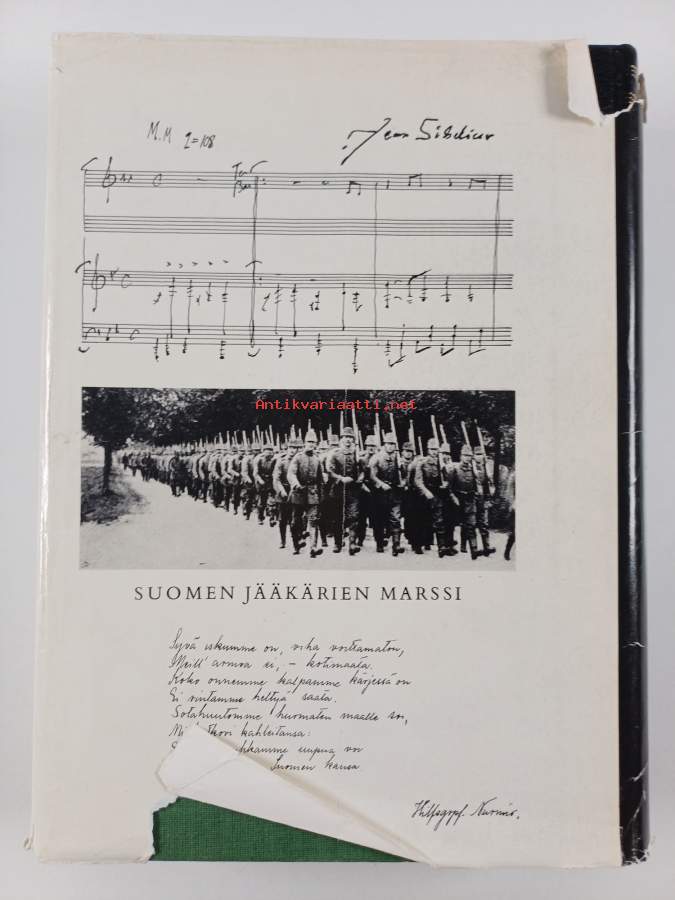 M.M ♩=108
Jean Sibelius
Ten
Antikvariaatti.net
SUOMEN JÄÄKÄRIEN MARSSI
Syvä iskumme on, viha voittamaton,
Meill' armoa ei, – kotimaata.
Koko onnemme kalpamme kärjessä on
Ei rintamme heltyä saata.
Sotahuutomme hurmaten maalle soi,
kahleitansa:
uupua voi
Suomen kansa
Hilfsgrpf. Nurmio.